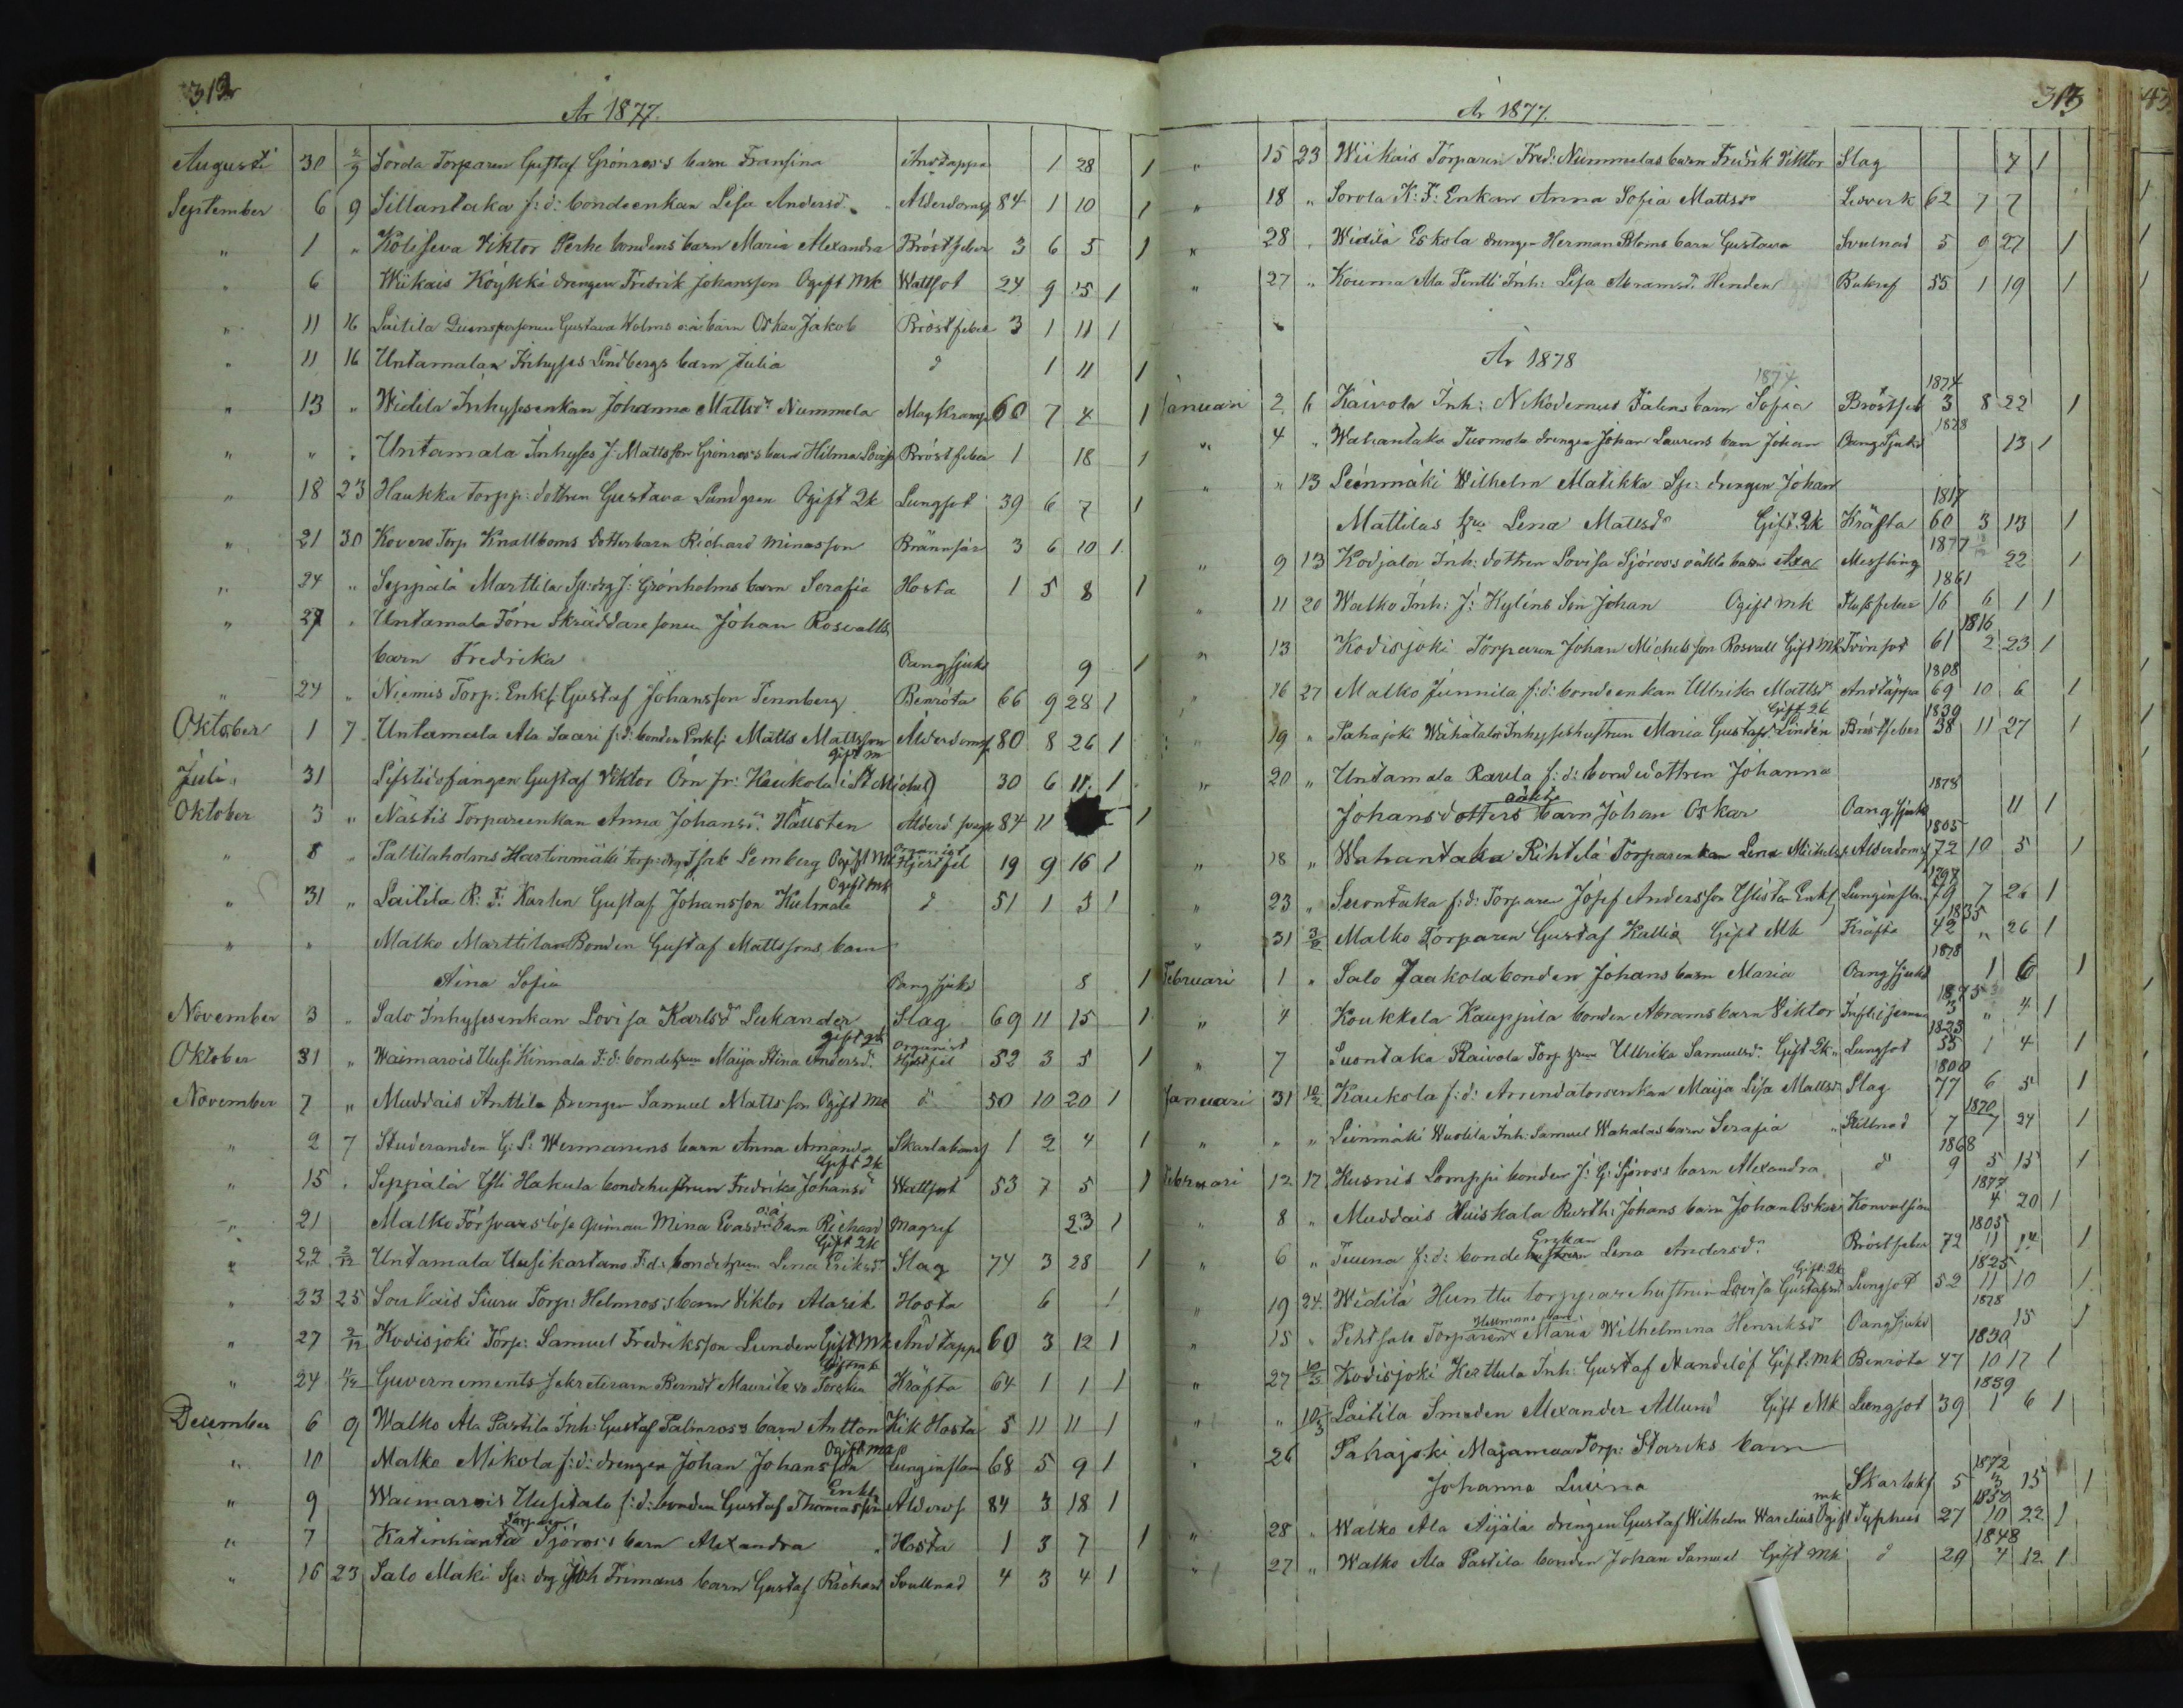 312
År 1877.
Augusti 30 2/9 Sorola Torparen Gustaf Grönroos's barn Fransina Andtäppa 1 28 1
September 6 9 Sillantaka f: d: bondeenkan Lisa Andersdr Ålderdomsf 84 1 10 1
" 1 " Koliseva Viktor Perhe bondens barn Maria Alexandra Bröstfeber 3 6 5 1
" 6 Wiikais Köykkä drengen Fredrik Johansson Ogift Mk Wattsot 24 9 15 1
" 11 16 Laitila Qvinspersonen Gustava Holms oä barn Oskar Jakob Bröstfeber 3 1 11 1
" 11 16 Untamalan Inhyses Lindbergs barn Julia d 1 11 1
" 13 " Widilä Inhysesenkan Johanna Mattsdr Nummela Magkramp 60 7 4 1
" " " Untamala Inhyses J: Mattsson Grönroos's barn Hilma Lovisa Bröstfeber 1 18 1
" 18 23 Haukka torpp: dottren Gustava Lundgren Ogift Qk Lungsot 39 6 7 1
" 21 30 Kovero Torp Knallboms dotterbarn Richard Minasson Brännsår 3 6 10 1
" 24 " Seppälä Marttila Sp: drg J: Grönholms barn Serafia Hosta 1 5 8 1
" 27 " Untamala Törni Skräddaresonen Johan Rosvalls
barn Fredrika Oangsjukd 9 1
" 24 " Niemis Torp: Enkl: Gustaf Johansson Tennberg Benröta 66 9 28 1
Oktober 1 7 Untamala Ala Saari f: d: bonden Enkl: Matts Mattsson Ålderdomsf 80 8 26 1
Gift m
Juli 31 Lifstidsfången Gustaf Viktor Örn fr: Kaukola (i St Michel) 30 6 11 1
Oktober 3 " Nästis Torpareenkan Anna Johansdr Hällsten Ålderd svagh 84 11 1
" 8 " Palttilaholms Hartinmäki torp: drg Isak Lemberg Ogift Mk Organist Hjertfel 19 9 16 1
Ogift Mk
" 31 " Laitila R: F: Karlen Gustaf Johansson Kulmala d 51 1 3 1
" " Malko Marttilan Bonden Gustaf Mattssons barn
Aina Sofia Oangsjukd 8 1
November 3 " Salo Inhysesenkan Lovisa Karlsdr Lukander Slag 69 11 15 1
gift qk
Oktober 31 " Waimarois Uusi Kinnala F: d: bondehrun Maija Stina Andersdr Organist Hjertfel 52 3 5 1
November 7 " Muddais Anttila Drengen Samuel Mattsson Ogift Mk d 50 10 20 1
" 2 7 Studeranden G: S: Wermanens barn Anna Amanda Skarlakansf 1 2 4 1
Gift Qk
" 15 " Seppälä Yli Hakula bondehustrun Fredrika Johansdr Wattsot 53 7 5 1
" 21 Malko Försvarslösa qvinnan Mina Evasdr oä barn Richard Magref 23 1
Gift Qk
" 22 2/12 Untamala Uusikartano F: d: bondehrun Lena Eriksdr Slag 74 3 28 1
" 23 25 Soukais Siuru Torp: Helmroos's barn Viktor Alarik Hosta 6 1
" 27 2/12 Kodisjoki Torp: Samuel Fredriksson Lunden Gift Mk Andtäppa 60 3 12 1
Gift mk
" 24 4/12 Guvernements sekreteraren Berndt Mauritz v: Torckén Kräfta 64 1 1 1
December 6 9 Walko Ala Pastila Inh: Gustaf Palmroos's barn Antton Kik Hosta 5 11 11 1
Ogift Mk
" 10 Malko Mikola f: d: drengen Johan Johansson Lunginflam 68 5 9 1
Enkl
" 9 Waimarois Uusitalo f: d: bonden Gustaf Thomasson Ålderdsf 84 3 18 1
Torparen
" 7 Katinhäntä Sjöros's barn Alexandra Hosta 1 3 7 1
" 16 23 Salo Mäki Sp: drg Joh Frimans barn Gustaf Richard Svullnad 4 3 4 1
313
År 1877.
" 15 23 Wiikais Torparen Fred: Nummelas barn Fredrik Viktor Slag 7 1
" 18 " Sorola K: F: Enkan Anna Sofia Mattsdr Ledverk 62 7 7
" 28 " Widilä Eskola drengen Herman Bloms barn Gustava Svulnad 5 9 27 1
" 27 " Kouma Ala Pentti Inh: Lisa Abramsdr Henden Bukref 55 1 19 1
År 1878
1874 1874
Januari 2 6 Kaivola Inh: Nikodemus Falens barn Sofia Bröstfeb 3 8 22 1
1878
" 4 " Wahantaka Tuomola drengen Johan Laurens barn Johan Oangsjukd 13 1
" " 13 Leinmäki Wilhelm Matikka Sp: drengen Johan
1817
Mattilas hru Lena Mattsdr Gift Qk Kräfta 60 3 13 1
1877
" 9 13 Kodjala Inh: dottren Lovisa Sjöroos's oäkta barn Axa Messling 22 1
1861
" 11 20 Walko Inh: J: Kyléns Son Johan Ogift mk Flussfeber 16 6 1 1
1816
" 13 Kodisjoki Torparen Johan Michelsson Rosvall Gift Mk Tvinsot 61 2 23 1
1808
" 16 27 Malko Junnila f: d: bondeenkan Ullrika Mattsdr Andtäppa 69 10 6 1
Gift Qk 1839
" 19 " Sahajoki Wähätalo Inhyseshustrun Maria Gustafsdr Lindén Bröstfeber 38 11 27 1
" 20 " Untamala Raula f: d: bondedottren Johanna
oäkta 1878
Johansdotters barn Johan Oskar Oangsjukd 11 1
1805
" 18 " Wahantaka Rihtilä Torpareenkan Lena Michelsd Ålderdomsf 72 10 5 1
1798
" 23 " Suontaka f: d: Torparen Josef Andersson Yllisten Enkl Lunginflam 79 7 26 1
1835
" 31 3/2 Malko Torparen Gustaf Kallia Gift Mk Kräfta 42 " 26 1
1878
Februari 1 " Salo Jaakola bonden Johans barn Maria Oangsjukd 1 6 1
1875
" 4 Koukkela Kauppila bonden Abrams barn Viktor 3 " 4 1
1823
" 7 Suontaka Raivola Torp hrun Ullrika Samuelsdr Gift Qk Lungsot 55 1 4 1
1800
Januari 31 10/2 Kaukola f: d: Arrendatorsenkan Maija Lisa Mattsdr Slag 77 6 5 1
1870
" " " Leinmäki Wuolila Inh: Samuel Wahalas barn Serafia Skillnad 7 7 24 1
1868
Februari 12 17 Kusnis Lomppi bonden J: G: Sjöroos's barn Alexandra d 9 5 15 1
1877
" 8 " Muddais Huiskala Rusth: Johans barn Johan Oskar Konvulsion 4 20 1
Enkan 1805
" 6 " Tuuna f: d: bondehustrun Lena Andersdr Bröstfeber 72 11 14 1
Gift Qk 1825
" 19 24 Widilä Hunttu torpparehustrun Lovisa Gustafsdr Lungsot 52 11 10 1
Hellmans barn 1878
" 15 " Pehtsalo Torparen Maria Wilhelmina Henriksdr Oangsjukd 15 1
1830
" 27 Kodisjoki Kerttula Inh: Gustaf Nandelöf Gift Mk Benröta 47 10 17 1
1839
" " 10/3 Laitila Smeden Alexander Allund Gift Mk Lungsot 39 1 6 1
" 26 Sahajoki Majamaa Torp: Starcks barn
1872
Johanna Luina Skarlakf 5 3 15 1
mk 1850
" 28 " Walko Ala Äijälä drengen Gustaf Wilhelm Warelius Ogift Typhus 27 10 22 1
1848
" 27 " Walko Ala Pastila bonden Johan Samuel Gift Mk d 29 4 12 1